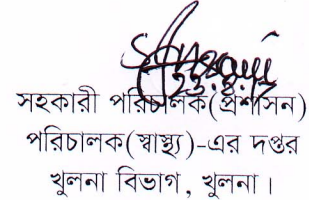 23.8.17
সহকারী পরিচালক(প্রশাসন)
পরিচালক(স্বাস্থ্য)-এর দপ্তর
খুলনা বিভাগ, খুলনা।